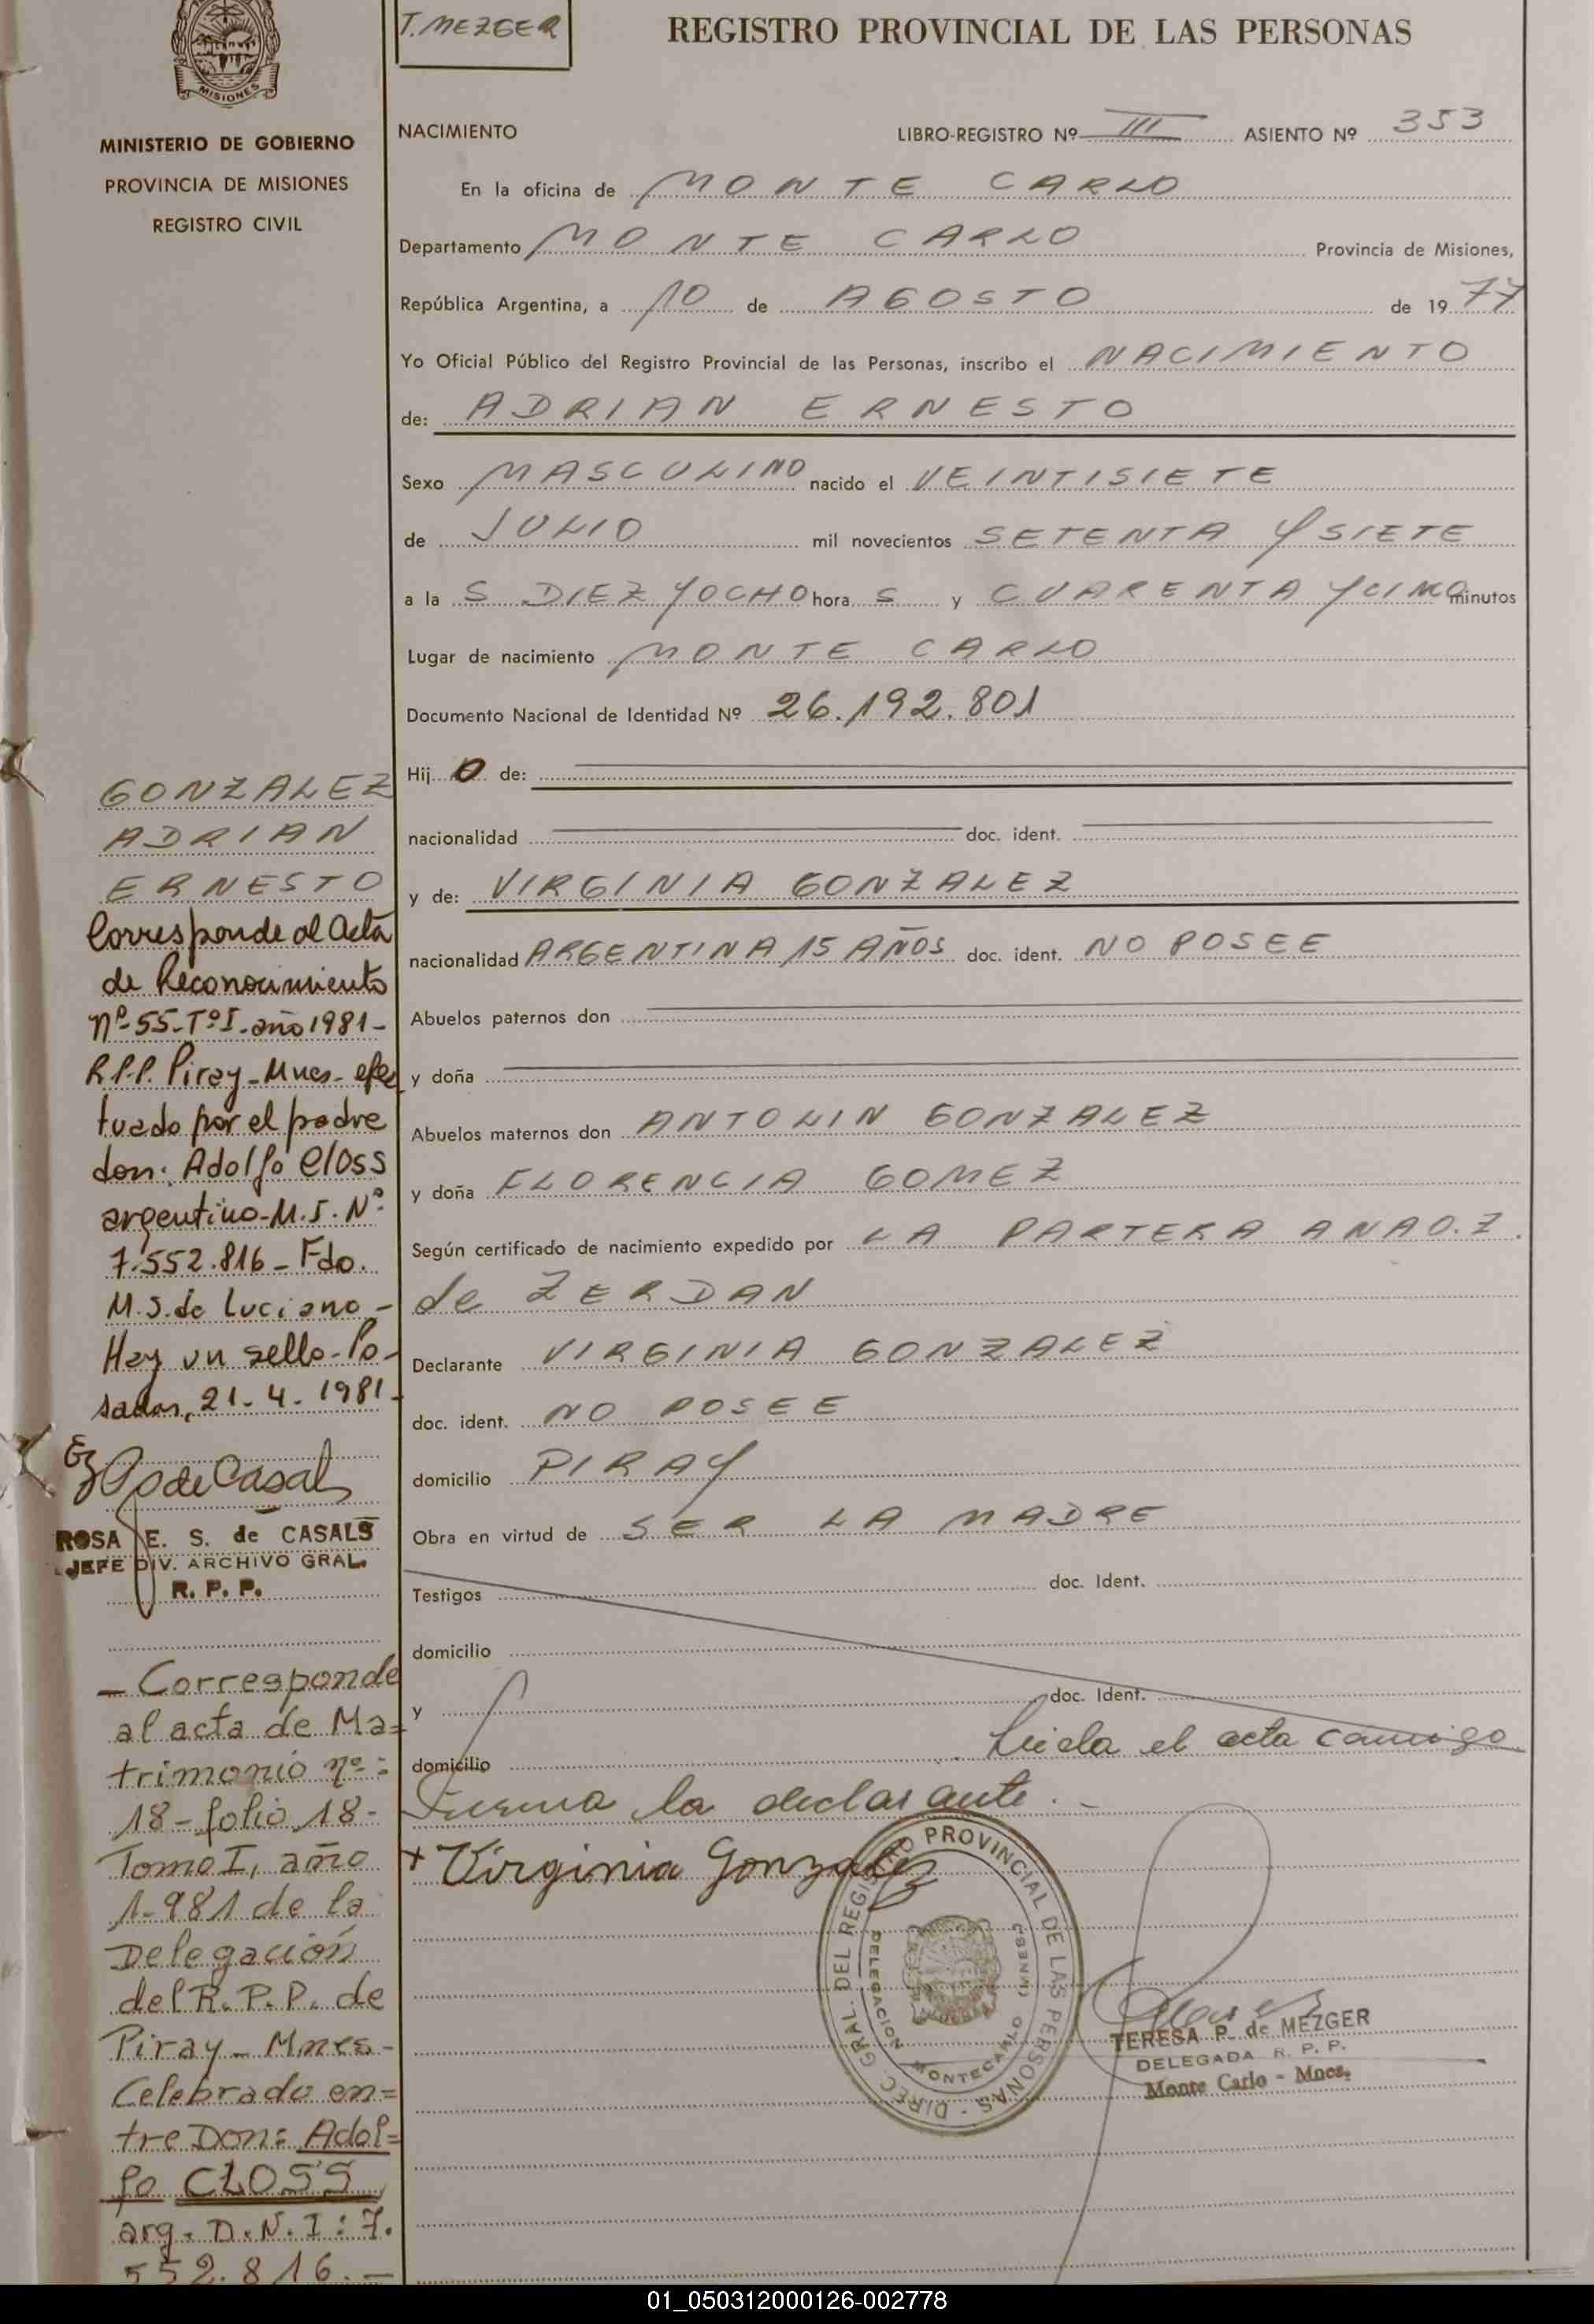 T. MEZGER
REGISTRO PROVINCIAL DE LAS PERSONAS
MISIONES
MINISTERIO DE GOBIERNO
PROVINCIA DE MISIONES
REGISTRO CIVIL
NACIMIENTO LIBRO-REGISTRO Nº III ASIENTO Nº 353
En la oficina de MONTE CARLO
Departamento MONTE CARLO Provincia de Misiones,
República Argentina, a 10 de AGOSTO de 1977
Yo Oficial Público del Registro Provincial de las Personas, inscribo el NACIMIENTO
de: ADRIAN ERNESTO
Sexo MASCULINO nacido el VEINTISIETE
de JULIO mil novecientos SETENTA Y SIETE
a la S DIEZ Y OCHO hora S y CUARENTA Y CINCO minutos
Lugar de nacimiento MONTE CARLO
Documento Nacional de Identidad Nº 26.192.801
Hij o de:
nacionalidad doc. ident.
y de: VIRGINIA GONZALEZ
nacionalidad ARGENTINA 15 AÑOS doc. ident. NO POSEE
Abuelos paternos don
y doña
Abuelos maternos don ANTOLIN GONZALEZ
y doña FLORENCIA GOMEZ
Según certificado de nacimiento expedido por LA PARTERA ANA O. Z.
de ZERDAN
Declarante VIRGINIA GONZALEZ
doc. ident. NO POSEE
domicilio PIRAY
Obra en virtud de SER LA MADRE
Testigos doc. Ident.
domicilio
y doc. Ident.
domicilio Leida el acta conmigo
Firma la declarante.-
+ Virginia Gonzalez
DIREC GRAL. DEL REGISTRO PROVINCIAL DE LAS PERSONAS -
DELEGACION MONTECARLO (MNES)
TERESA P. de MEZGER
DELEGADA R. P. P.
Monte Carlo - Mnes.
GONZALEZ
ADRIAN
ERNESTO
Corresponde al Acta
de Reconocimiento
Nº 55-Tº I- año 1981-
R.P.P. Piray-Mnes- efec
tuado por el padre
don: Adolfo Closs
argentino-M.I. Nº
7.552.816- Fdo.
M.S. de Luciano-
Hay un sello-Po-
sadas, 21-4-1981-
ROSA E. S. de CASALS
JEFE DIV. ARCHIVO GRAL.
R. P. P.
- Corresponde
al acta de Ma=
trimonio nº:
18-folio 18-
Tomo I, año
1.981 de la
Delegación
del R.P.P. de
Piray-Mnes-
Celebrado en=
tre Don: Adol=
fo CLOSS
arg. D.N.I: 7.
552.816.-
01_050312000126-002778